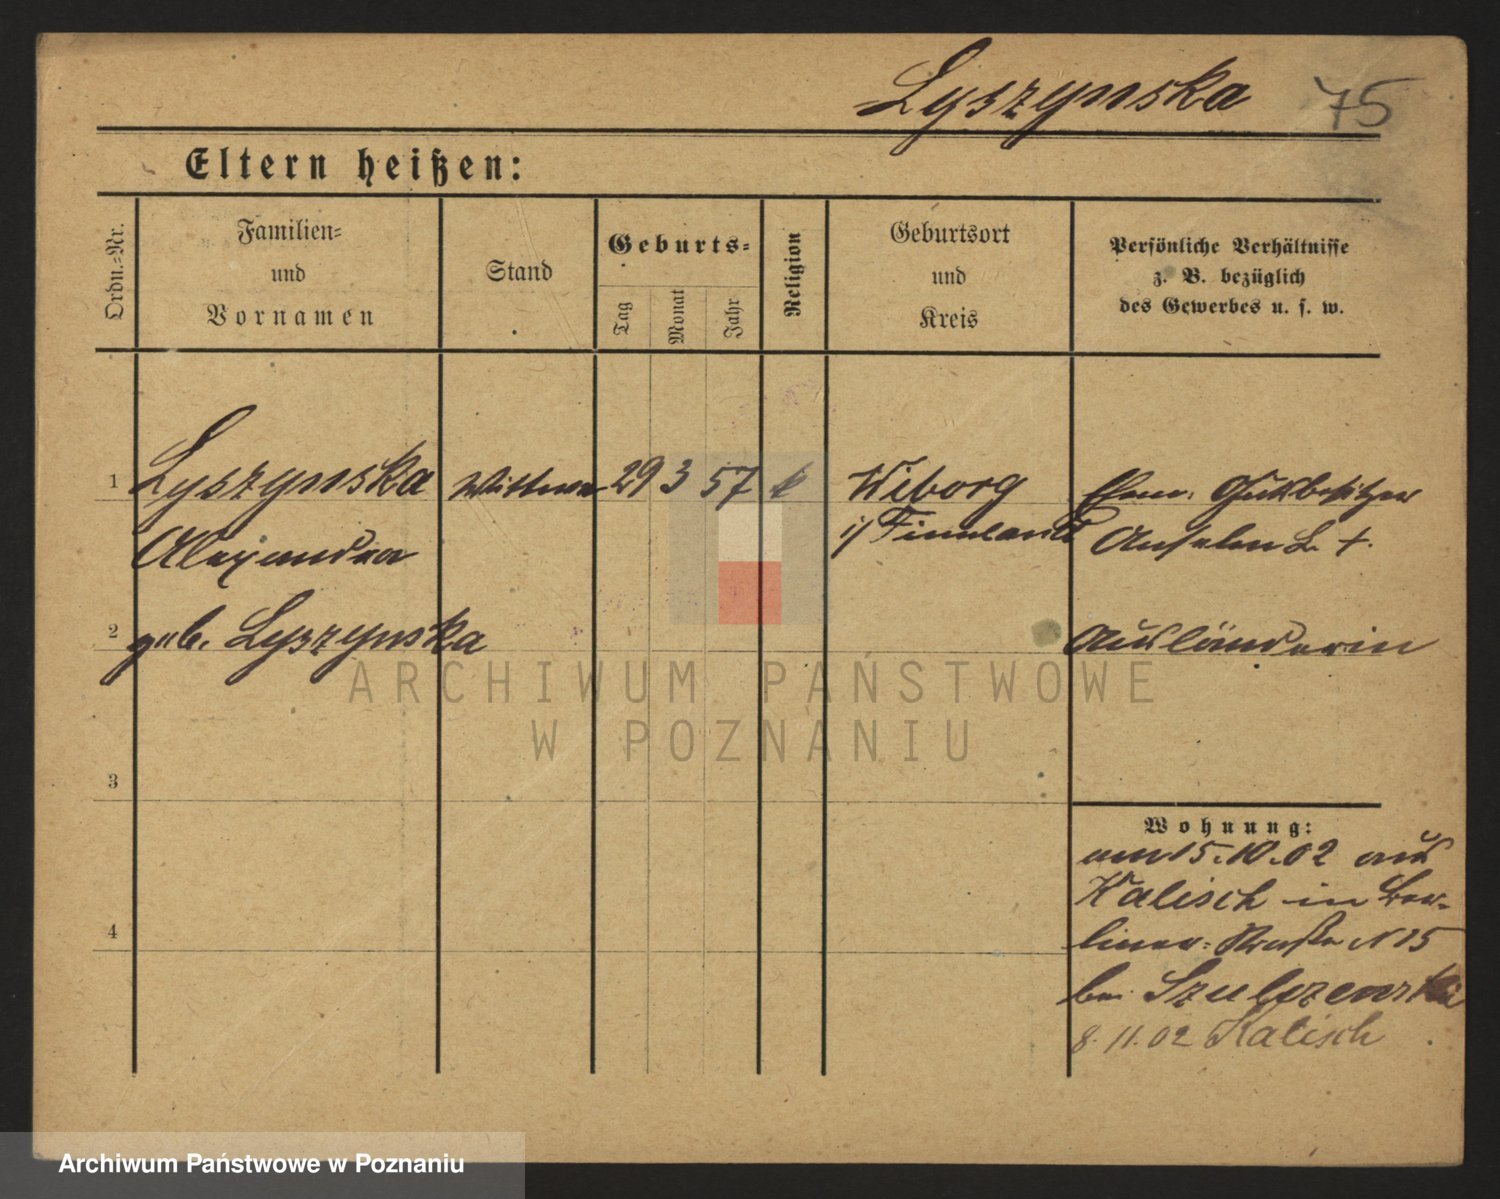 Lyszynska 75
Eltern heißen:
Ordn.-Nr.
Familien-
und
Vornamen
Stand
Geburts-
Tag
Monat
Jahr
Religion
Geburtsort
und
Kreis
Persönliche Verhältnisse
z. B. bezüglich
des Gewerbes u. s. w.
1 Lyszynska Wittwe 29 3 57 k Wiborg Ehem. Gutsbesitzer
Alexandra i/ Finnland Anselm L. +.
2 geb. Lyszynska Ausländerin
ARCHIWUM PAŃSTWOWE
W POZNANIU
3
Wohnung:
am 15.10.02 aus
Kalisch in Ber-
4
liner-Straße N 15
bei
8.11.02 Kalisch
Archiwum Państwowe w Poznaniu